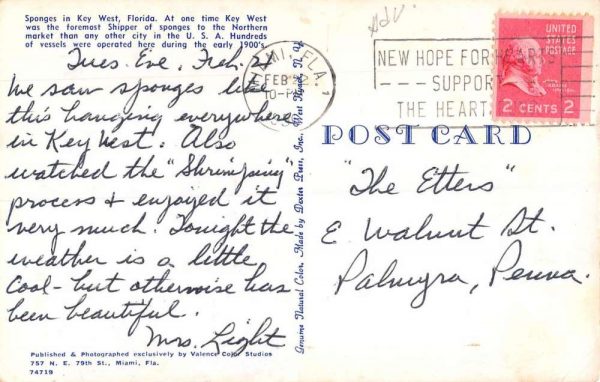 Sponges in Key West, Florida. At one time Key West
was the foremost Shipper of sponges to the Northern
market than any other city in the U. S. A. Hundreds
of vessels were operated here during the early 1900's.
Tues. Eve, Feb.
We saw sponges like
this hanging everywhere
in Key West. Also
watched the "Shrimping"
process & enjoyed it
very much. Tonight the
weather is a little
cool - but otherwise has
been beautiful.
Mrs. Light
Published & Photographed exclusively by Valence Color Studios
757 N. E. 79th St., Miami, Fla.
74719
Genuine Natural Color. Made by Dexter Press, Inc., West Nyack, N. Y.
Adv.
MIAMI, FLA. 1
FEB
10-PM
NEW HOPE FOR HEARTS
SUPPORT
THE HEART
UNITED
STATES
POSTAGE
2 CENTS 2
POST CARD
"The Etters"
E Walnut St.
Palmyra, Penna.